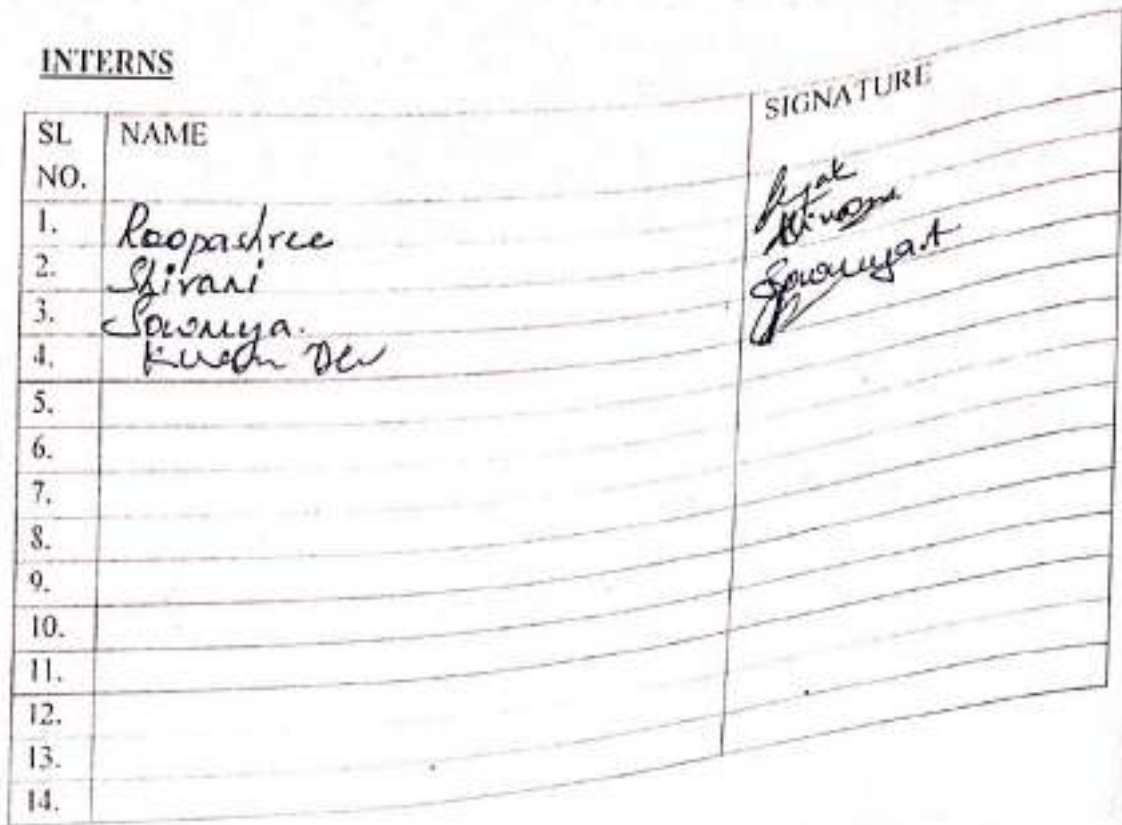 INTERNS
SL NO. NAME SIGNATURE
1. Roopashree
2. Shivani
3. Sowmya. Sowmya.A
4.
5.
6.
7.
8.
9.
10.
11.
12.
13.
14.